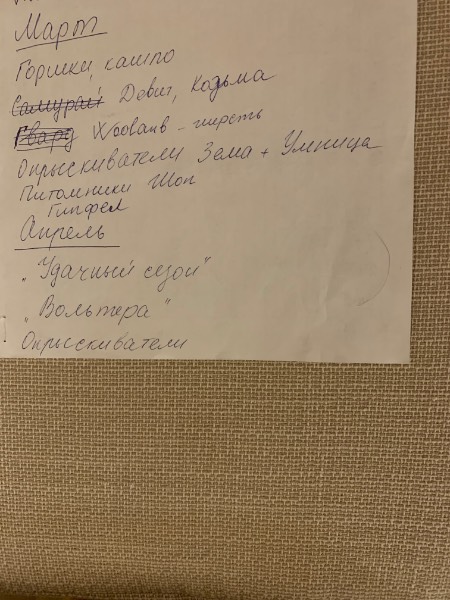 Март
Горшки, кашпо
Самурай Девит, Кадьма
Гвард Woolанв - шерсть
Опрысскиватели Зема + Умница
Питомники Шоп
Гипфел
Апрель
„Удачный сезон"
„Вольтера"
Опрысскиватели